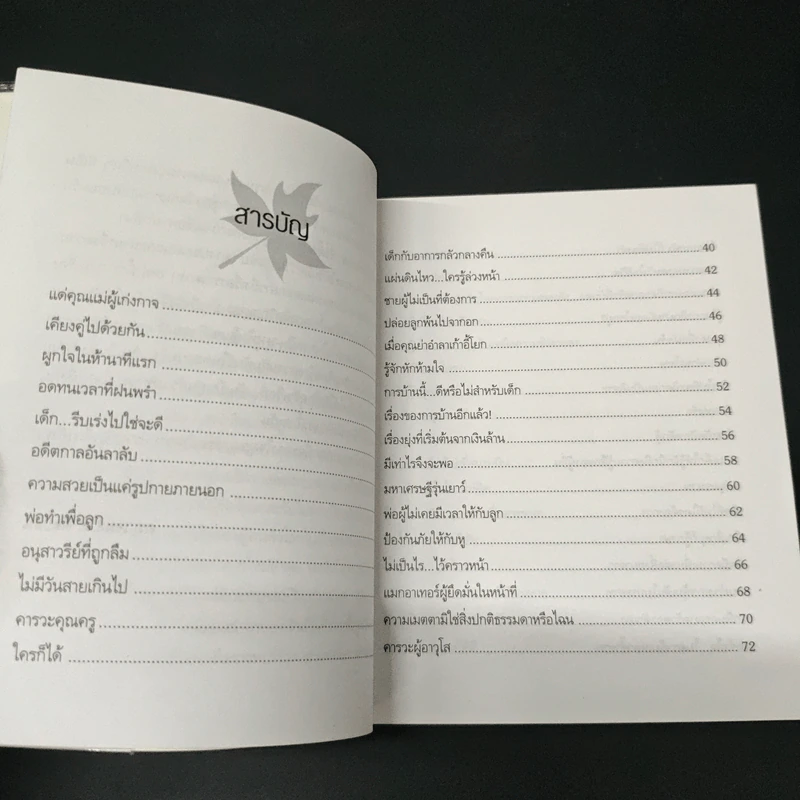 สารบัญ
แด่คุณแม่ผู้เก่งกาจ
เคียงคู่ไปด้วยกัน
ผูกใจในห้านาทีแรก
อดทนเวลาที่ฝนพรำ
เด็ก...รีบเร่งไปใช่จะดี
อดีตกาลอันลาลับ
ความสวยเป็นแค่รูปกายภายนอก
พ่อทำเพื่อลูก
อนุสาวรีย์ที่ถูกลืม
ไม่มีวันสายเกินไป
คารวะคุณครู
ใครก็ได้
เด็กกับอาการกลัวกลางคืน 40
แผ่นดินไหว...ใครรู้ล่วงหน้า 42
ชายผู้ไม่เป็นที่ต้องการ 44
ปล่อยลูกพ้นไปจากอก 46
เมื่อคุณย่าอำลาเก้าอี้โยก 48
รู้จักหักห้ามใจ 50
การบ้านนี้...ดีหรือไม่สำหรับเด็ก 52
เรื่องของการบ้านอีกแล้ว! 54
เรื่องยุ่งที่เริ่มต้นจากเงินล้าน 56
มีเท่าไรจึงจะพอ 58
มหาเศรษฐีรุ่นเยาว์ 60
พ่อผู้ไม่เคยมีเวลาให้กับลูก 62
ป้องกันภัยให้กับหู 64
ไม่เป็นไร...ไว้คราวหน้า 66
แมกอาเทอร์ผู้ยึดมั่นในหน้าที่ 68
ความเมตตามิใช่สิ่งปกติธรรมดาหรือไฉน 70
คารวะผู้อาวุโส 72